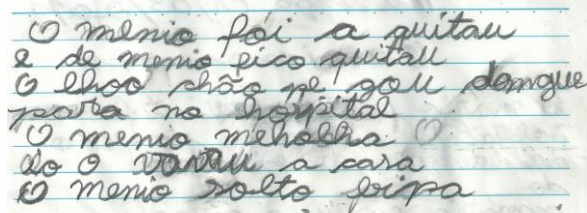 O menio foi a quitau
e de menio fico quitau
O lhoo chão pe gou domgue
para no hospital
O menio mehalha O
do o vavau a casa
O menio solto pipa